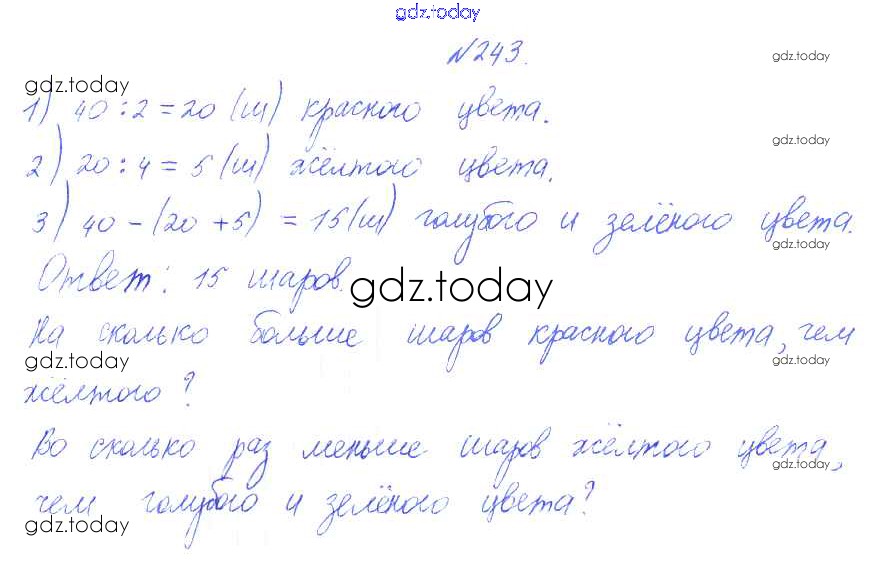 gdz.today
№243.
gdz.today
gdz.today
1) 40 : 2 = 20 (ш) красного цвета.
gdz.today
2) 20 : 4 = 5 (ш) жёлтого цвета.
3) 40 - (20 + 5) = 15 (ш) голубого и зелёного цвета.
gdz.today
Ответ: 15 шаров.
gdz.today
На сколько больше шаров красного цвета, чем
gdz.today
gdz.today
жёлтого?
Во сколько раз меньше шаров жёлтого цвета,
gdz.today
чем голубого и зелёного цвета?
gdz.today
gdz.today